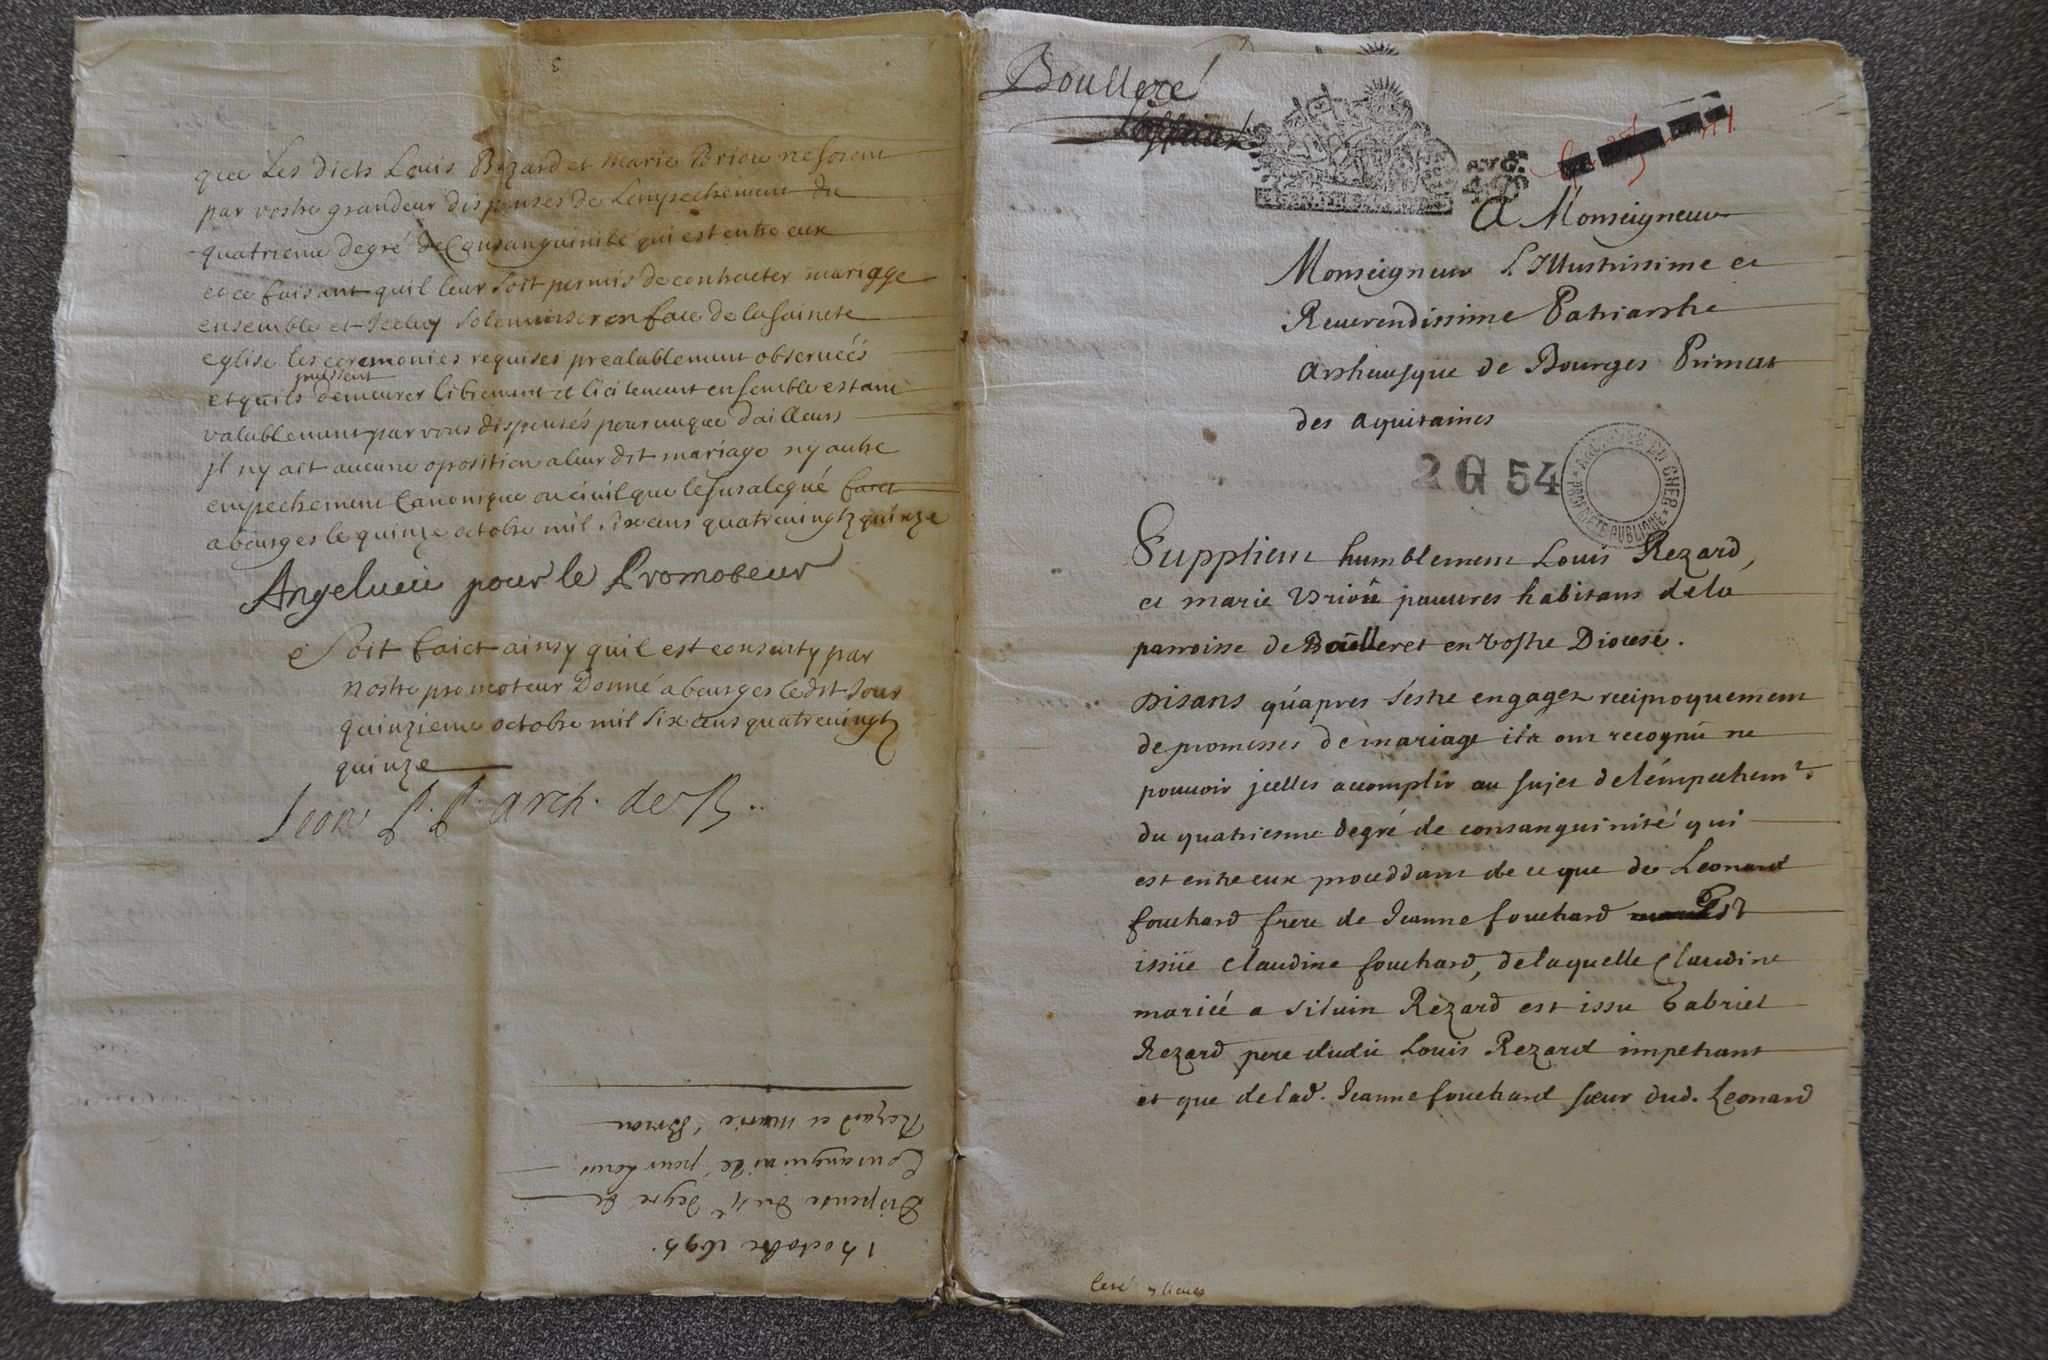 que les dicts Louis Rezard et Marie Briou ne soient
par vostre grandeur dispensés de l'empechement du
quatrieme degré de Consanguinité qui est entre eux
et ce faisant quil leur soit permis de contracter mariage
ensemble et Iceluy solemniser en face de la saincte
eglise les ceremonies requises prealablement observéés
puissent
et quils demeurer librement et licitement ensemble estant
valablement par vous dispensés pourveu que d'ailleurs
il ny ait aucune oposition a leur dit mariage ny autre
empechement Canonique ou civil que le susalegué faict
a bourges le quinze octobre mil six cens quatrevingtz quinze
pour le Promoteur
Soit faict ainsy quil est consenty par
nostre promoteur Donné a bourges ledit Jour
quinzieme octobre mil six cens quatrevingt
quinze
Leon P. P. arch. de B..
15 octobre 1695.
Dispense du 4e degré de
Consanguinité pour Louis
Rezard et Marie Briou
Boulleré
A Monseigneur
Monseigneur L'Illustrissime et
Reverendissime Patriarche
Archevesque de Bourges Primat
des Aquitaines
2 G 54
ARCHIVES DU CHER
PROPRIETE PUBLIQUE
Supplient humblement Louis Rezard,
et marie Brioû pauvres habitans de la
parroisse de Boulleret en vostre Diocese.
Disans qu'apres s'estre engagez reciproquement
de promesses de mariage ilz ont recognu ne
pouvoir jcelles accomplir au sujet de l'émpechemt.
du quatriesme degré de consanguinité qui
est entre eux proceddant de ce que de Leonard
fouchard frere de Jeanne fouchard est
issüe Claudine fouchard, de laquelle Claudine
mariéé a Silvin Rezard est issu Gabriel
Rezard pere dudit Louis Rezard impetrant
et que de lad. Jeanne fouchard sœur dud. Leonard
Leré 7 lieues